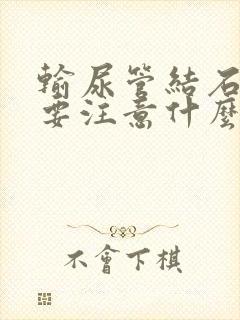 輸尿管結石
要注意什麼
不會下棋